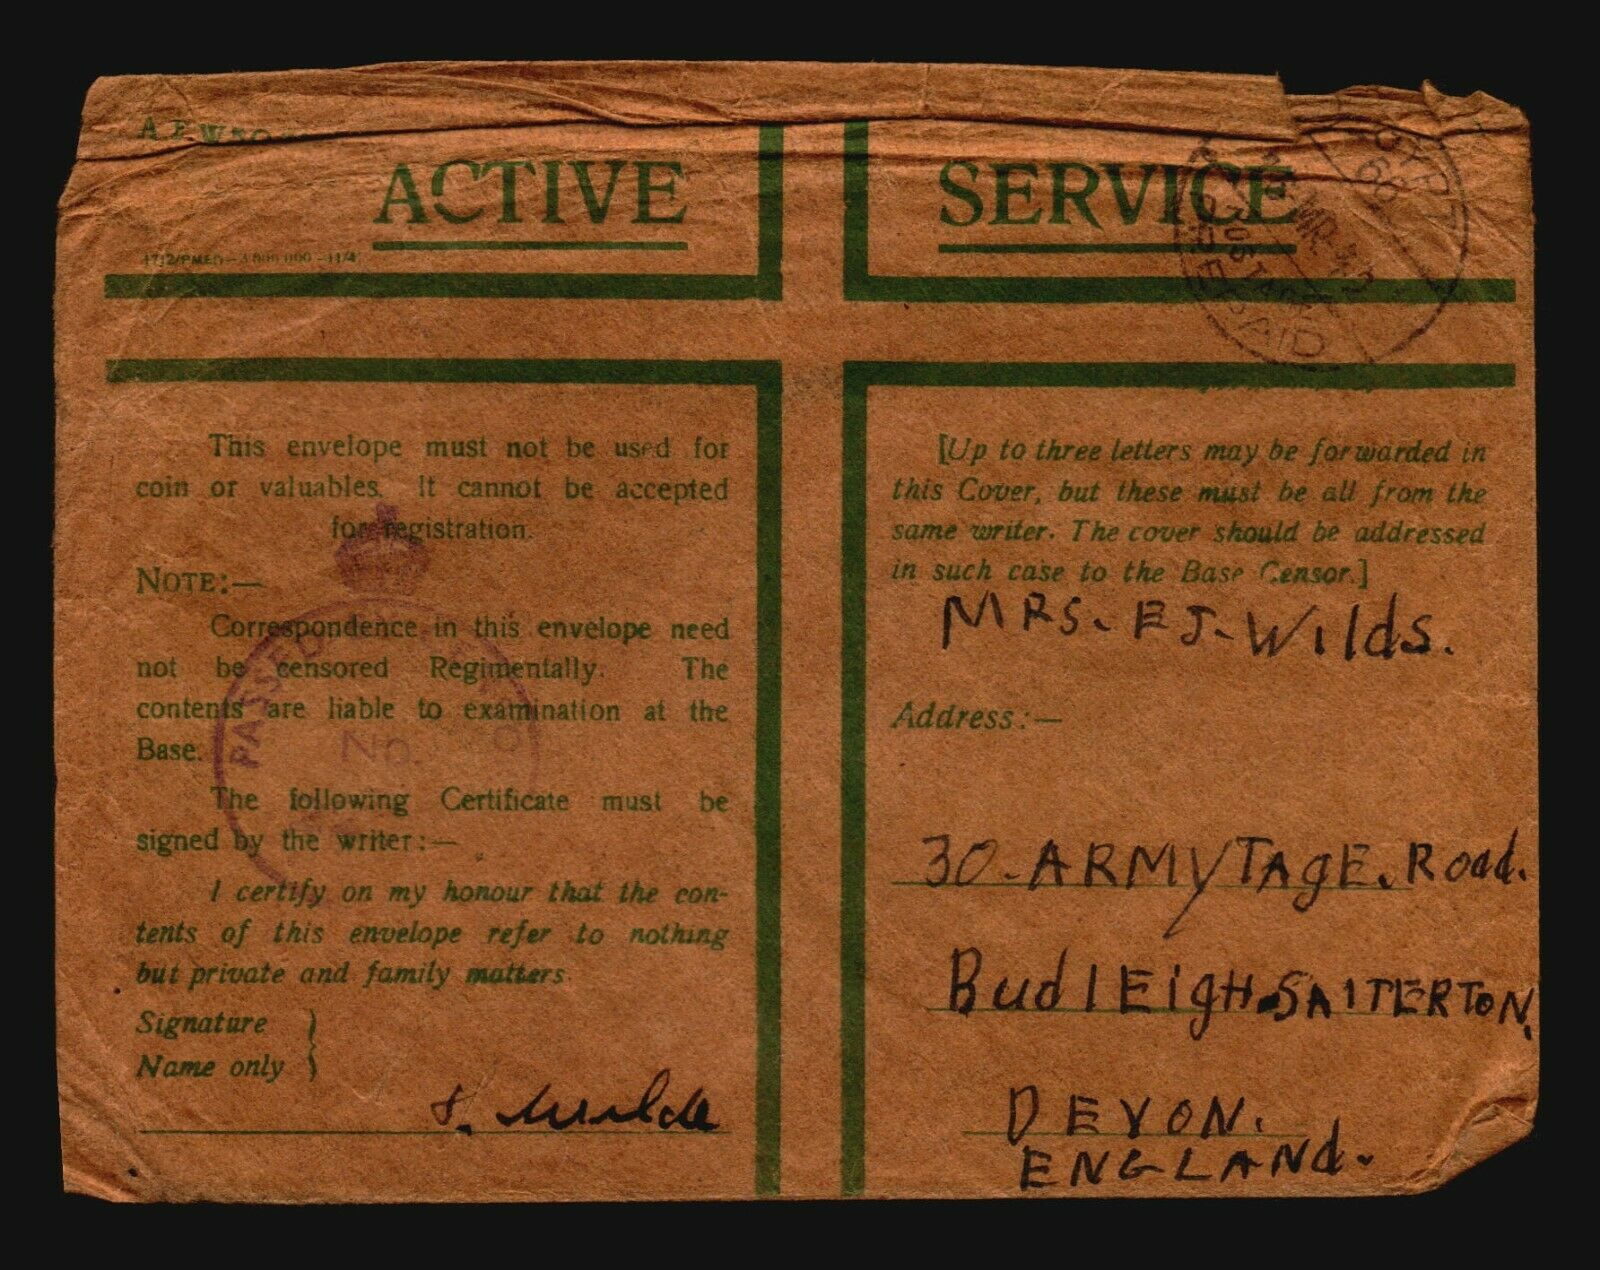 ACTIVE SERVICE
EGYPT
60
MR
42
POSTAGE
PREPAID
This envelope must not be used for
coin or valuables. It cannot be accepted
for registration.
NOTE:—
Correspondence in this envelope need
not be censored Regimentally. The
contents are liable to examination at the
Base.
The following Certificate must be
signed by the writer:—
I certify on my honour that the con-
tents of this envelope refer to nothing
but private and family matters.
Signature
Name only
PASSED
NO.
[Up to three letters may be forwarded in
this Cover, but these must be all from the
same writer. The cover should be addressed
in such case to the Base Censor.]
MRS. EJ. Wilds.
Address:—
30. ARMYTAgE. Road.
BudlEigH. SAlTERTON.
DEVON.
ENGLANd.